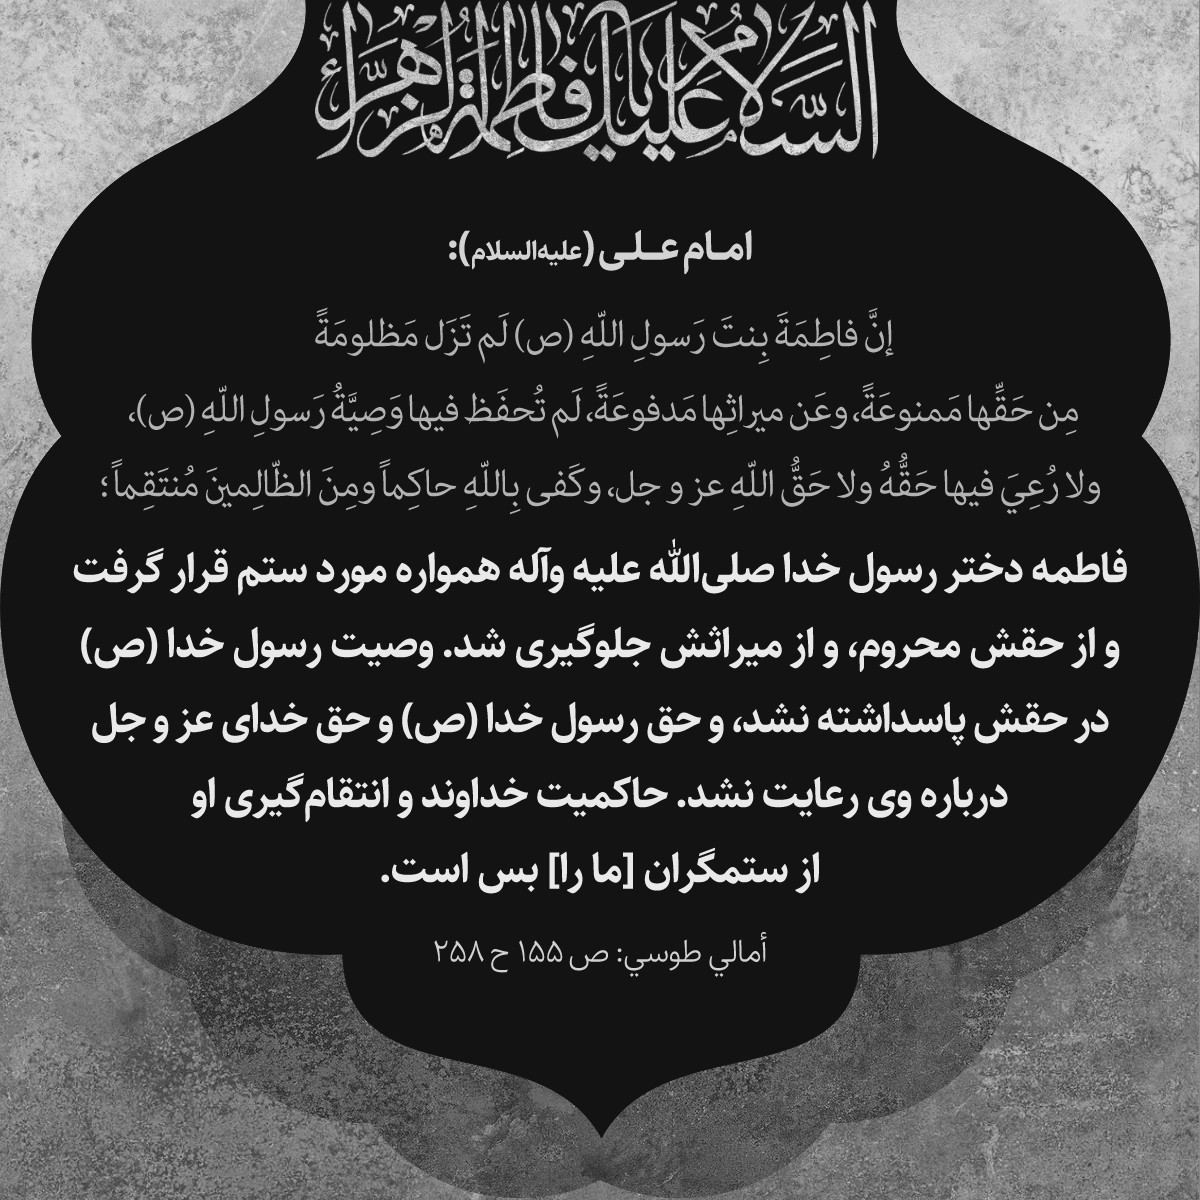 السلام علیک یا فاطمة الزهراء
امـام عـلـی (علیه‌السلام):
إنَّ فاطِمَةَ بِنتَ رَسولِ اللّهِ (ص) لَم تَزَل مَظلومَةً
مِن حَقِّها مَمنوعَةً، وعَن ميراثِها مَدفوعَةً، لَم تُحفَظ فيها وَصِيَّةُ رَسولِ اللّهِ (ص)،
ولا رُعِيَ فيها حَقُّهُ ولا حَقُّ اللّهِ عز و جل، وكَفى بِاللّهِ حاكِماً ومِنَ الظّالِمينَ مُنتَقِماً؛
فاطمه دختر رسول خدا صلی‌الله علیه وآله همواره مورد ستم قرار گرفت
و از حقش محروم، و از میراثش جلوگیری شد. وصیت رسول خدا (ص)
در حقش پاسداشته نشد، و حق رسول خدا (ص) و حق خدای عز و جل
درباره وی رعایت نشد. حاکمیت خداوند و انتقام‌گیری او
از ستمگران [ما را] بس است.
أمالي طوسي: ص ۱۵۵ ح ۲۵۸